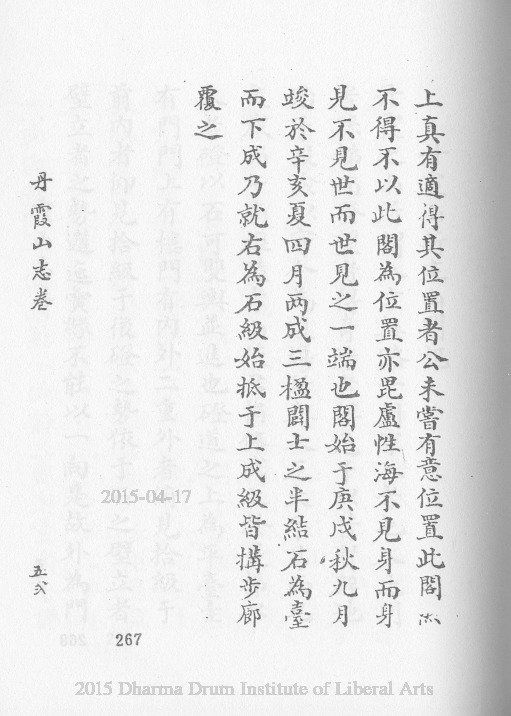 上真有適得其位置者公未嘗有意位置此閣
不得不以此閣為位置亦毘盧性海不見身而身
見不見世而世見之一端也閣始于庚戌秋九月
竣於辛亥夏四月两成三楹闢士之半結石為臺
而下成乃就右為石級始抵于上成級皆搆步廊
覆之
丹霞山志卷
五
267
2015-04-17
2015 Dharma Drum Institute of Liberal Arts